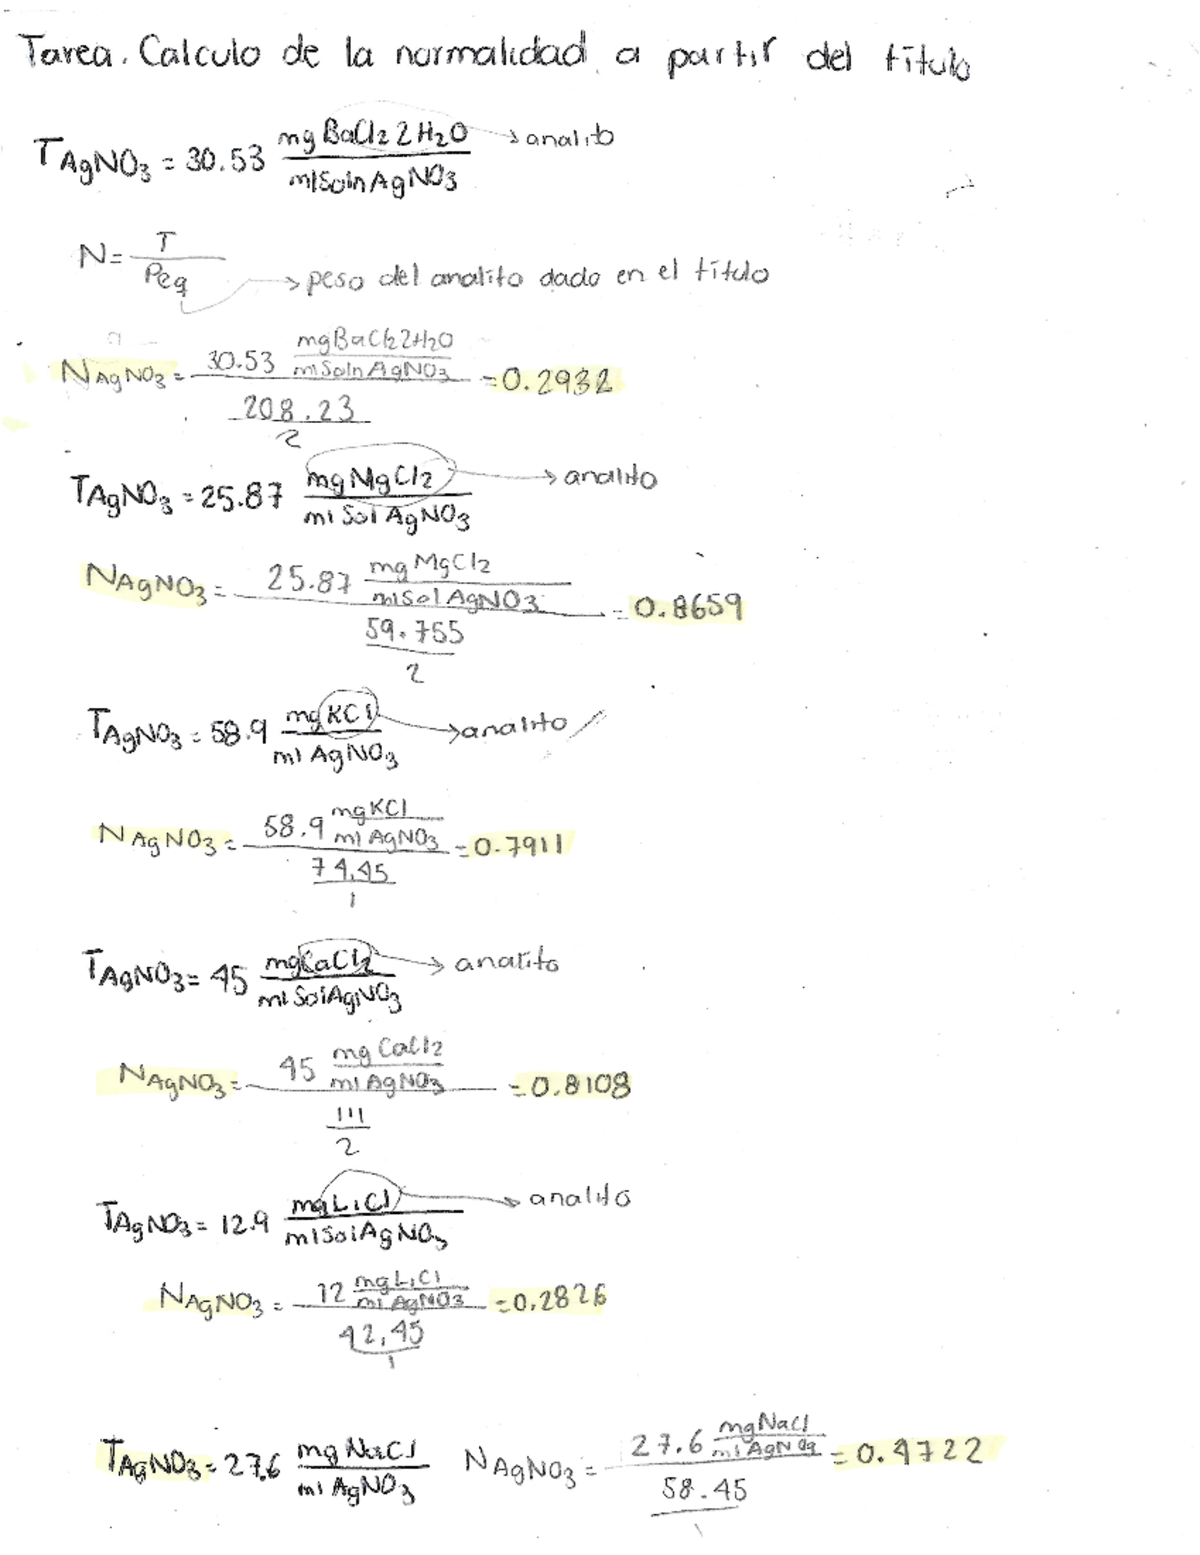 Tarea. Calculo de la normalidad a partir del título
T AgNO3 = 30.53 mg BaCl2 2H2O / ml Soln AgNO3 → analito
N = T / Peq → peso del analito dado en el título
N AgNO3 = 30.53 mg BaCl2 2H2O / ml Soln AgNO3 / 208.23 / 2 = 0.2932
T AgNO3 = 25.87 mg MgCl2 / ml Sol AgNO3 → analito
N AgNO3 = 25.87 mg MgCl2 / ml Sol AgNO3 / 59.755 / 2 = 0.8659
T AgNO3 = 58.9 mg KCl / ml AgNO3 → analito
N AgNO3 = 58.9 mg KCl / ml AgNO3 / 74.45 / 1 = 0.7911
T AgNO3 = 45 mg CaCl2 / ml Sol AgNO3 → analito
N AgNO3 = 45 mg CaCl2 / ml AgNO3 / 111 / 2 = 0.8108
T AgNO3 = 12.9 mg LiCl / ml Sol AgNO3 → analito
N AgNO3 = 12 mg LiCl / ml AgNO3 / 42,45 / 1 = 0,2826
T AgNO3 = 27.6 mg NaCl / ml AgNO3 N AgNO3 = 27.6 mg NaCl / ml AgNO3 / 58.45 / 1 = 0.4722